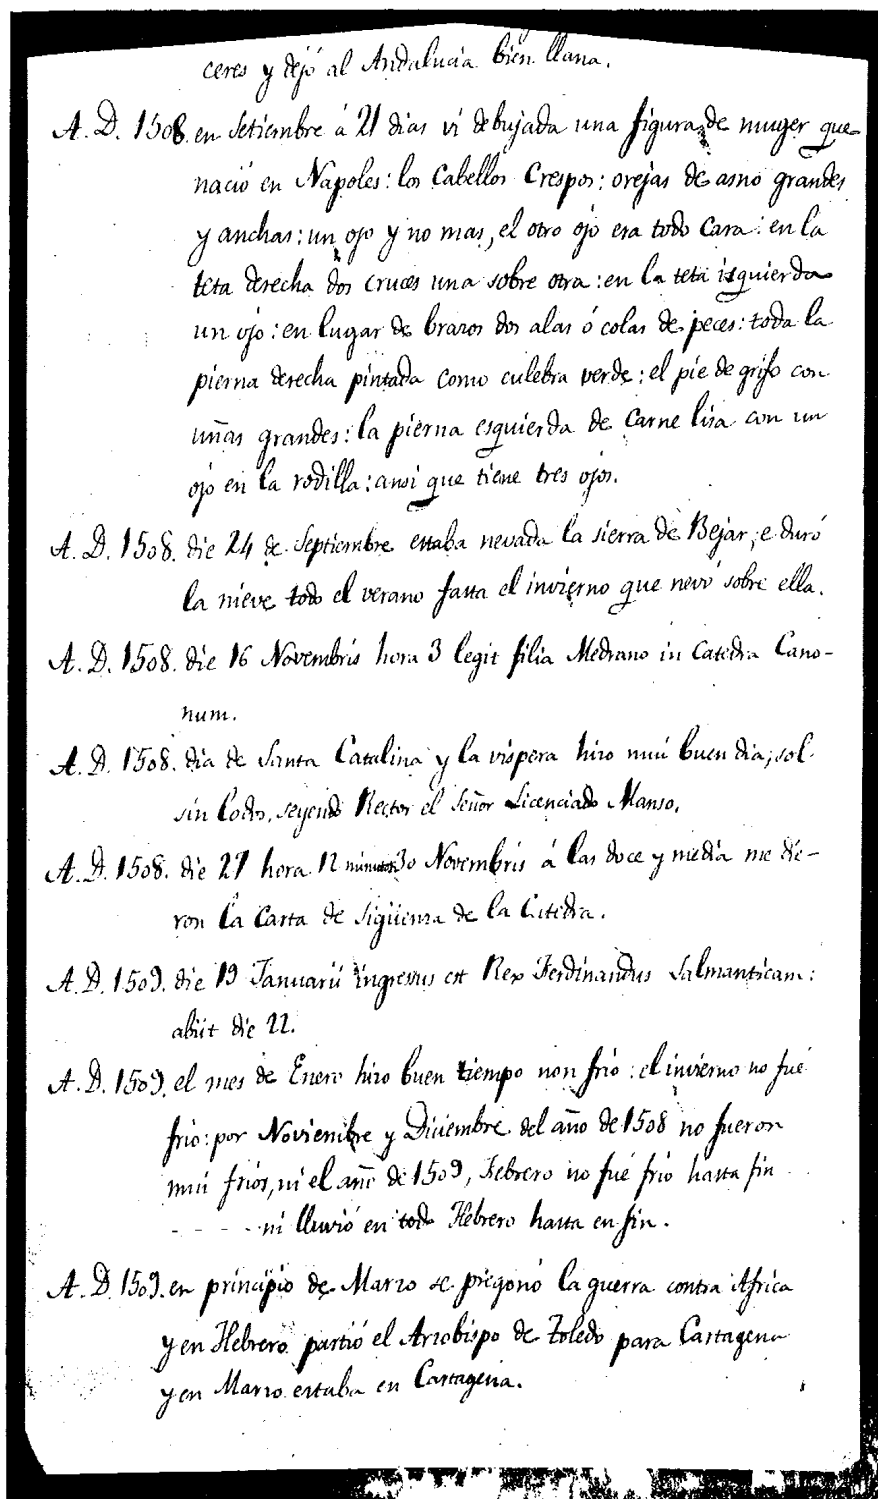 ceres y dejó al Andalucia bien llana.
A. D. 1508. en Setiembre á 21 dias vi debujada una figura de muger que
nació en Napoles: los Cabellos Crespos: orejas de asno grandes
y anchas: un ojo y no mas, el otro ojo era todo Cara: en la
teta derecha dos cruces una sobre otra: en la teta isquierda
un ojo: en lugar de brazos dos alas ó colas de peces: toda la
pierna derecha pintada como culebra verde: el pie de grifo con
uñas grandes: la pierna esquierda de Carne lisa con un
ojo en la rodilla: ansi que tiene tres ojos.
A. D. 1508. die 24 de Septiembre estaba nevada la sierra de Bejar, e duró
la nieve todo el verano fasta el invierno que nevó sobre ella.
A. D. 1508. die 16 Novembris hora 3 legit filia Medrano in Catedra Cano-
num.
A. D. 1508. dia de Santa Catalina y la vispera hizo mui buen dia; sol
sin lodos, seyendo Rector el Señor Licenciado Manso.
A. D. 1508. die 27 hora 12 minutos 30 Novembris á las doce y media me die-
ron la Carta de Sigüenza de la Catedra.
A. D. 1509. die 19 Januarii ingressus est Rex Ferdinandus Salmanticam:
abiit die 22.
A. D. 1509. el mes de Enero hizo buen tiempo non frio: el invierno no fué
frio: por Noviembre y Diciembre del año de 1508 no fueron
mui frios, ni el año de 1509, Febrero no fué frio hasta fin
- - - - - ni lluvió en todo Hebrero hasta en fin.
A. D. 1509. en principio de Marzo se pregonó la guerra contra Africa
y en Hebrero partió el Arzobispo de Toledo para Cartagena
y en Marzo estaba en Cartagena.